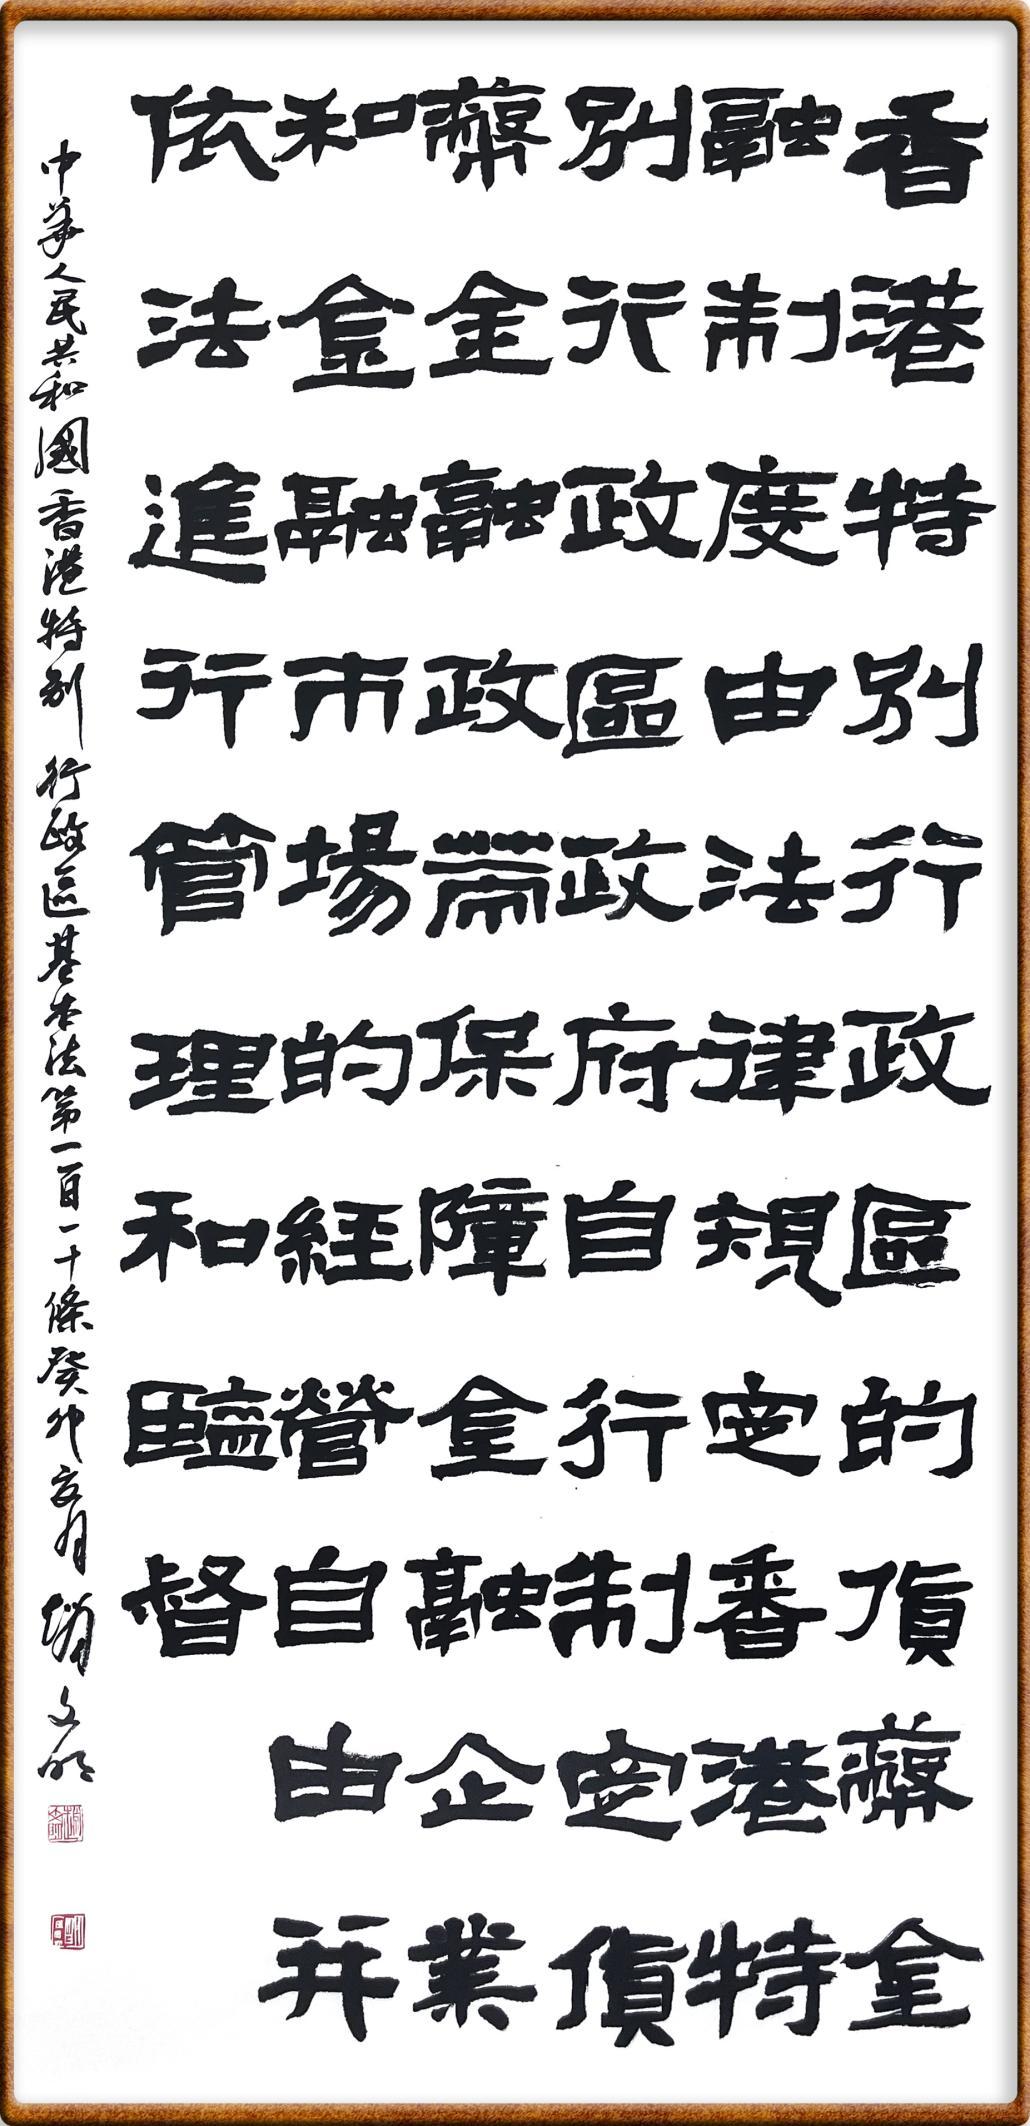 香港特別行政區的貨幣金
融制度由法律規定香港特
別行政區政府自行制定貨
幣金融政策保障金融企業
和金融市場的經營自由并
依法進行管理和監督
中華人民共和國香港特別行政區基本法第一百一十條癸卯亥月趙文明